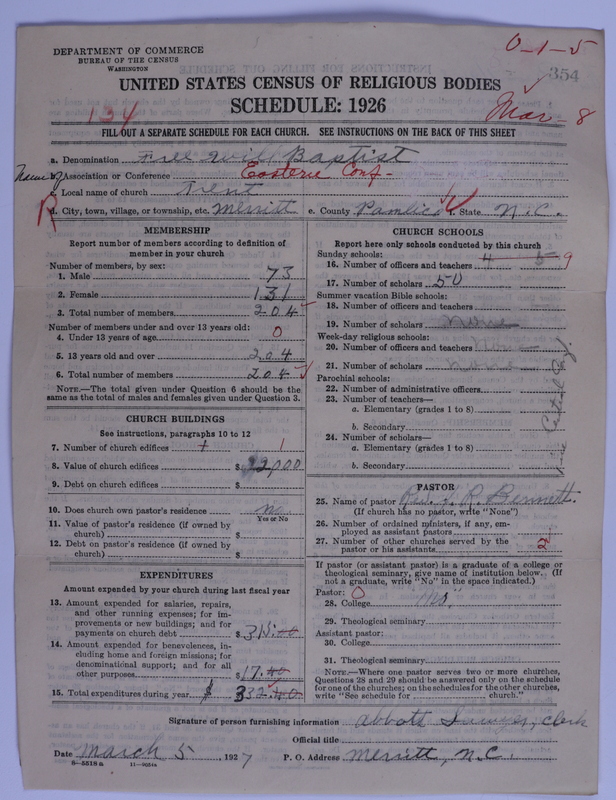 DEPARTMENT OF COMMERCE
BUREAU OF THE CENSUS
WASHINGTON
0-1-5
354
UNITED STATES CENSUS OF RELIGIOUS BODIES
SCHEDULE: 1926
134
Mar- 8
FILL OUT A SEPARATE SCHEDULE FOR EACH CHURCH. SEE INSTRUCTIONS ON THE BACK OF THIS SHEET
a. Denomination Free Will Baptist
Name of Association or Conference Eastern Conf-
Local name of church Trent
R
d. City, town, village, or township, etc. Merritt e. County Pamlico f. State N.C.
MEMBERSHIP
Report number of members according to definition of member in your church
Number of members, by sex:
1. Male 73
2. Female 131
3. Total number of members 204
Number of members under and over 13 years old:
4. Under 13 years of age 0
5. 13 years old and over 204
6. Total number of members 204
NOTE.—The total given under Question 6 should be the same as the total of males and females given under Question 3.
CHURCH BUILDINGS
See instructions, paragraphs 10 to 12
7. Number of church edifices 1
8. Value of church edifices $ 2,000
9. Debt on church edifices $
10. Does church own pastor's residence no
Yes or No
11. Value of pastor's residence (if owned by church) $
12. Debt on pastor's residence (if owned by church) $
EXPENDITURES
Amount expended by your church during last fiscal year
13. Amount expended for salaries, repairs, and other running expenses; for improvements or new buildings; and for payments on church debt $ 315.00
14. Amount expended for benevolences, including home and foreign missions; for denominational support; and for all other purposes $ 17.40
15. Total expenditures during year $ 332.40
CHURCH SCHOOLS
Report here only schools conducted by this church
Sunday schools:
16. Number of officers and teachers 4 5 9
17. Number of scholars 50
Summer vacation Bible schools:
18. Number of officers and teachers
19. Number of scholars None
Week-day religious schools:
20. Number of officers and teachers None
21. Number of scholars
Parochial schools:
22. Number of administrative officers
23. Number of teachers—
a. Elementary (grades 1 to 8)
b. Secondary
24. Number of scholars—
a. Elementary (grades 1 to 8)
b. Secondary
PASTOR
25. Name of pastor Rev. R. Bennett
(If church has no pastor, write "None")
26. Number of ordained ministers, if any, employed as assistant pastors
27. Number of other churches served by the pastor or his assistants 2
If pastor (or assistant pastor) is a graduate of a college or theological seminary, give name of institution below. (If not a graduate, write "No" in the space indicated.)
Pastor: 0
28. College "no"
29. Theological seminary
Assistant pastor:
30. College
31. Theological seminary
NOTE.—Where one pastor serves two or more churches, Questions 28 and 29 should be answered only on the schedule for one of the churches; on the schedules for the other churches, write "See schedule for church."
Signature of person furnishing information Abbott Sawyer, Clerk
Official title
Date March 5, 1927 P. O. Address Merritt, N.C.
8-5518 a